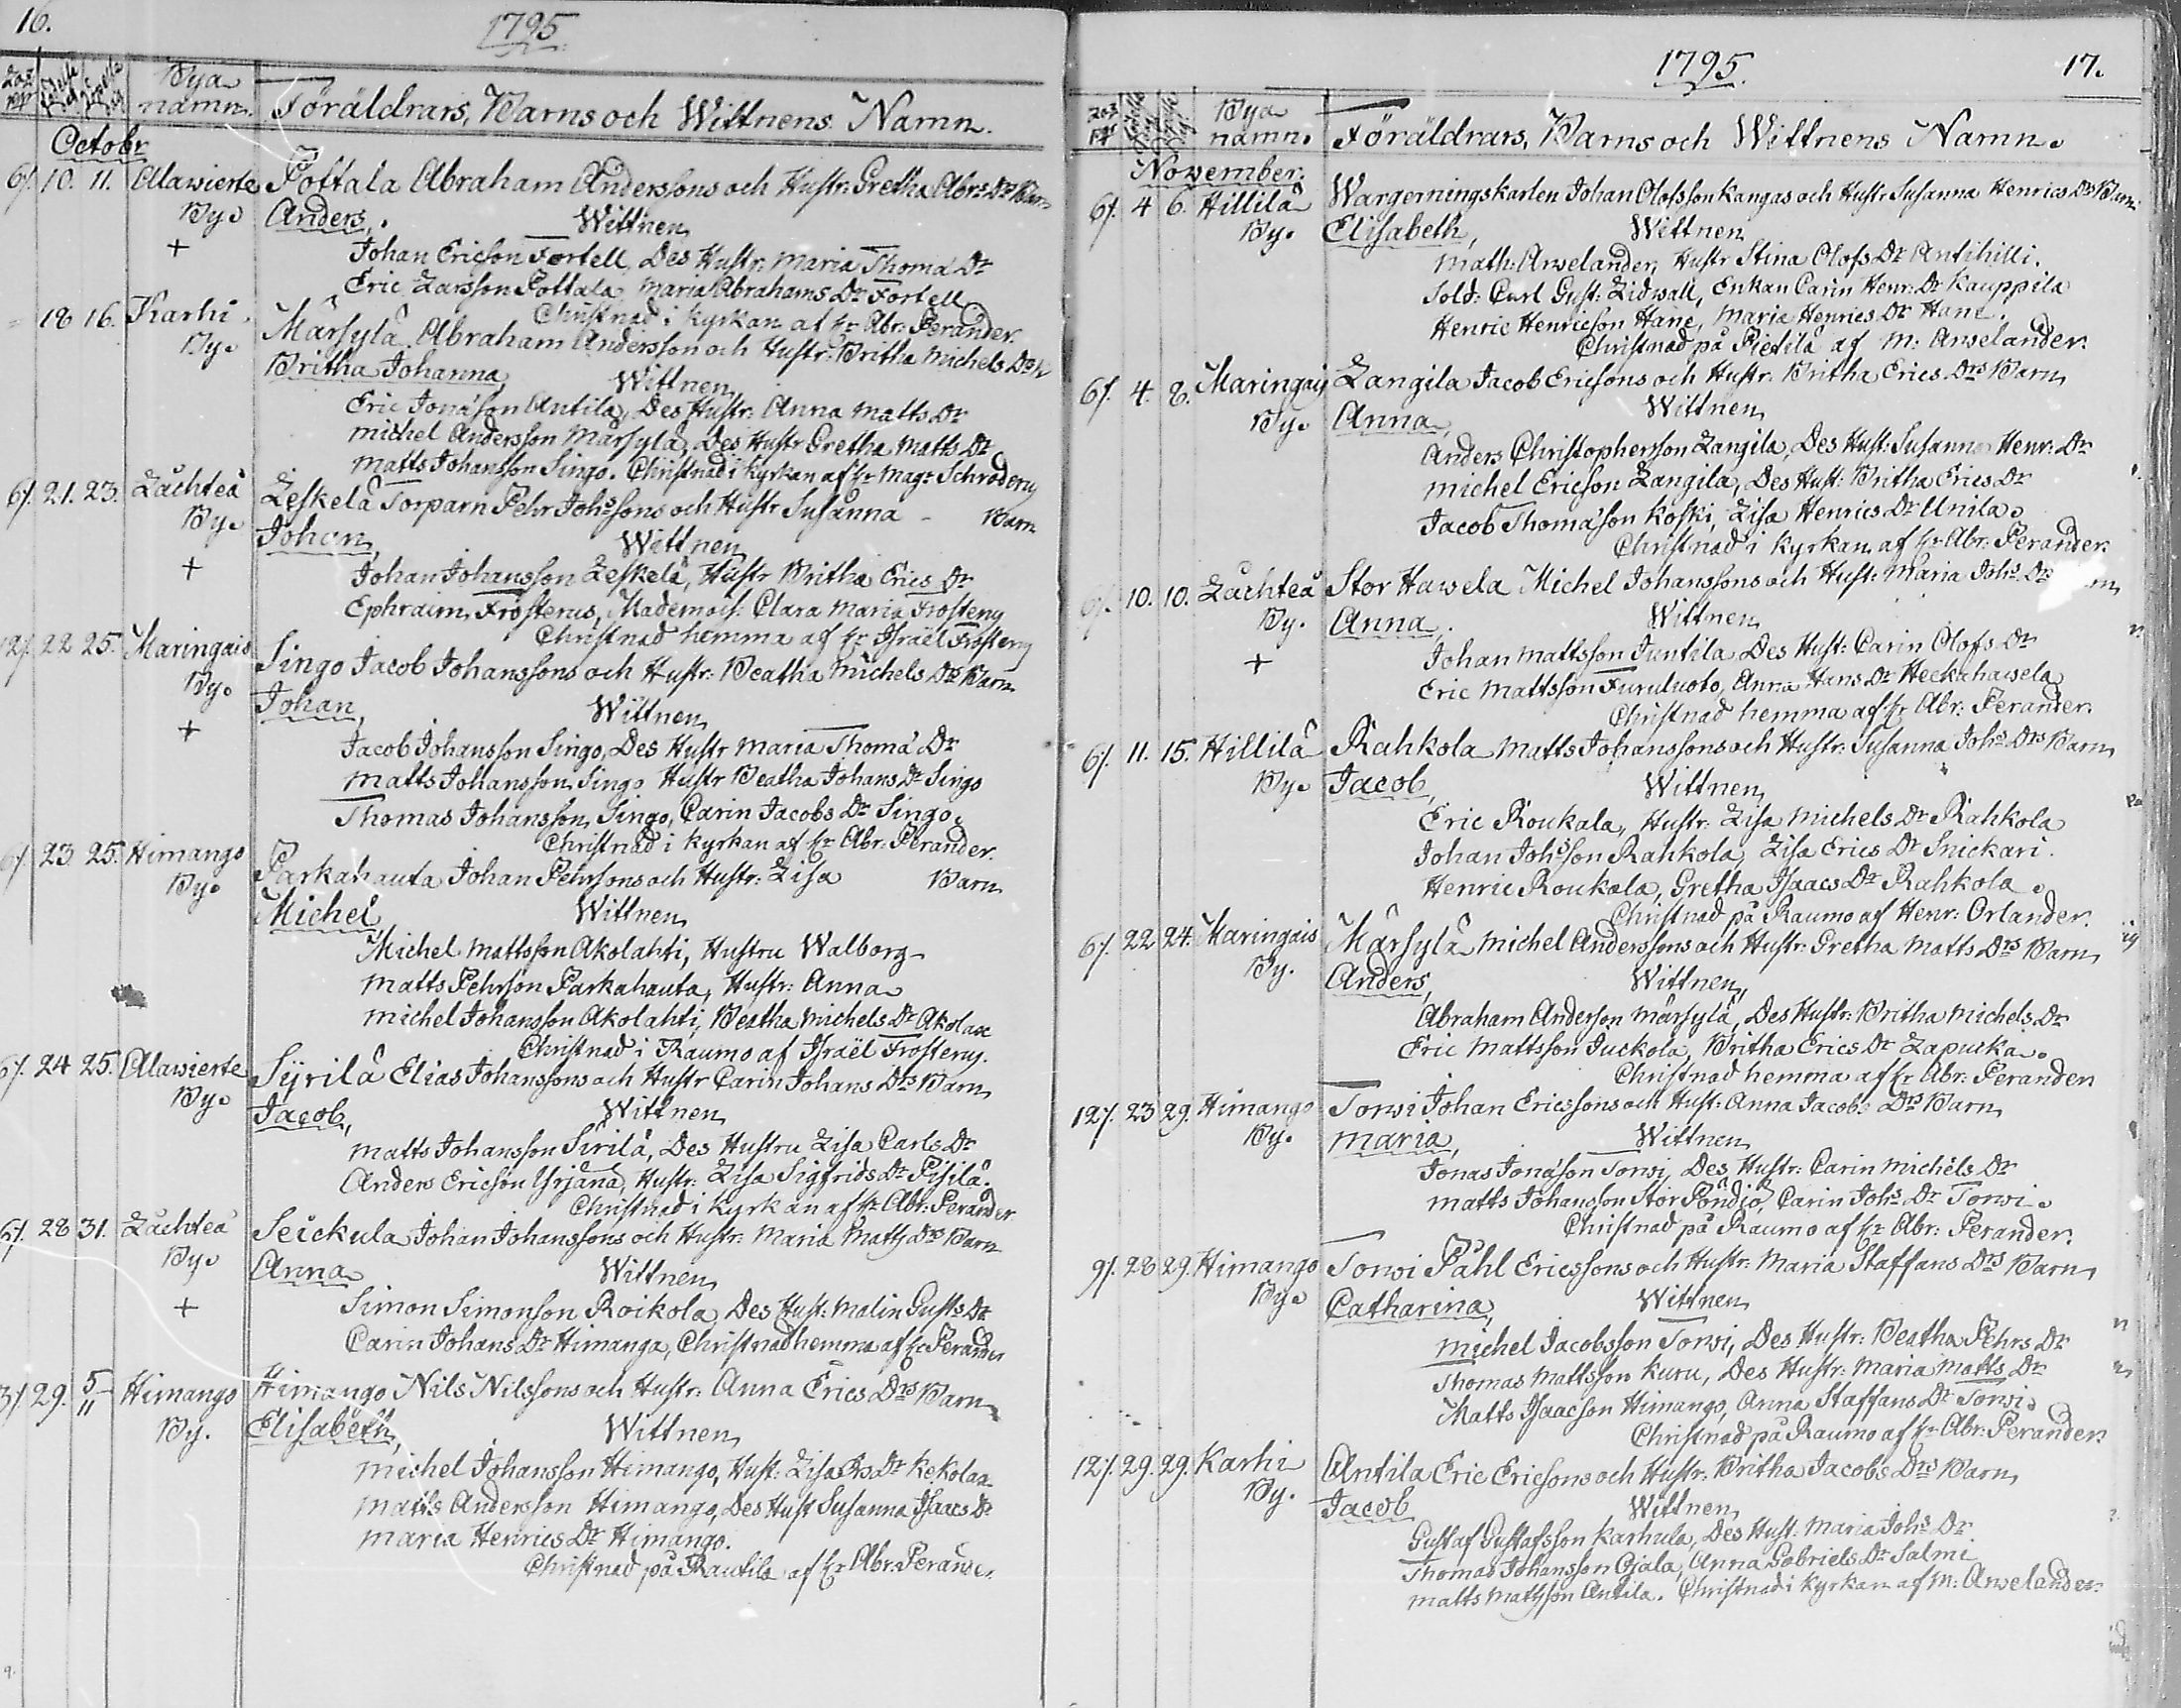 16.
1795
Bya namn.
Föräldrars, Barns och Wittnens Namn.
Octobr
6/. 10. 11. Alawierte By. Pottala Abraham Anderssons och Hustr: Gretha Abr: Dr Barn
Anders, Wittnen
+
Johan Ericson Fortell, Des Hustr: Maria Thomæ Dr
Eric Larsson Pottala, Maria Abrahams Dr Fortell
Christnad i kyrkan af Hr Abr: Perander.
18 16. Karhi By. Märsylä Abraham Andersson och Hustr: Britha Michels Drs
Britha Johanna, Wittnen
Eric Jonæson Antila, Des Hustr: Anna Matts Dr
Michel Andersson Märsylä, Des Hustr Gretha Matts Dr
Matts Johansson Singo. Christnad i kyrkan af Hr Magr Schroderus
6/. 21. 23. Lachteå By. Leskelä Torparn Pehr Johssons och Hustr Susanna - Barn
Johan, Wittnen
+
Johan Johansson Leskelä, Hustr Britha Erics Dr
Ephraim Frosterus, Mademois: Clara Maria Frosterus
Christnad hemma af Hr Israël Frosterus
12/. 22 25. Maringais By. Singo Jacob Johanssons och Hustr: Beatha Michels Drs Barn
Johan, Wittnen
+
Jacob Johansson Singo, Des Hustr Maria Thomæ Dr
Matts Johansson Singo Hustr Beatha Johans Dr Singo
Thomas Johansson Singo, Carin Jacobs Dr Singo.
Christnad i kyrkan af Hr Abr: Perander.
6/. 23 25. Himango By. Parkahauta Johan Pehrsons och Hustr: Lisa Barn
Michel Wittnen
Michel Mattsson Akolahti, Hustru Walborg
Matts Pehrson Parkahauta, Hustr: Anna
Michel Johansson Akolahti, Beatha Michels Dr Akolax
Christnad i Raumo af Israël Frosterus.
6/. 24 25. Alawierte By. Syrilä Elias Johanssons och Hustr Carin Johans Drs Barn
Jacob, Wittnen
Matts Johansson Sirilä, Des Hustru Lisa Carls Dr
Anders Ericson Yrjänä, Hustr: Lisa Sigfrids Dr Pisilä.
Christnad i Kyrkan af Hr Abr: Perander
6/. 28 31. Lachteå By. Seickula Johan Johanssons och Hustr: Maria Matts Drs Barn
Anna Wittnen
+
Simon Simonson Roikola, Des Hust: Malin Gusts Dr
Carin Johans Dr Himanga, Christnad hemma af Hr Perander
3/. 29. 5/11 Himango By. Himango Nils Nilssons och Hustr: Anna Erics Drs Barn
Elisabeth, Wittnen
Michel Johansson Himango, Hust: Lisa Dr Kekolax
Matts Andersson Himango, Des Hust Susanna Isaacs Dr
Maria Henrics Dr Himango.
Christnad på Rautila af Hr Abr: Perander.
1795.
17.
Bya namn.
Föräldrars, Barns och Wittnens Namn.
November.
6/. 4 6. Hillilä By. Wargerningskarlen Johan Olofsson Kangas och Hustr Susanna Henrics Drs Barn
Elisabeth, Wittnen
Math: Arvelander, Hustr Stina Olofs Dr Antihilli.
Sold: Carl Gust: Lidwall, Enkan Carin Henr: Dr Kauppila
Henric Henricson Hane, Maria Henrics Dr Hane.
Christnad på Pietilä af M: Arvelander.
6/. 4. 8. Maringais By. Langila Jacob Ericsons och Hustr: Britha Erics Drs Barn
Anna, Wittnen
Anders Christophersson Langila, Des Hust: Susanna Henr: Dr
Michel Ericson Langila, Des Hust: Britha Erics Dr
Jacob Thomæson Koski, Lisa Henrics Dr Unila.
Christnad i Kyrkan af Hr Abr: Perander.
6/. 10. 10. Lachteå By. Stor Hawela Michel Johanssons och Hust: Maria Johs Drs
Anna, Wittnen
+
Johan Mattsson Juntila Des Hust: Carin Olofs Dr
Eric Mattsson Furuluoto, Anna Hans Dr Heckahawela
Christnad hemma af Hr Abr: Perander.
6/. 11. 15. Hillilä By. Rahkola Matts Johanssons och Hustr: Susanna Johs Drs Barn
Jacob Wittnen
Eric Roukala, Hustr: Lisa Michels Dr Rahkola
Johan Johsson Rahkola, Lisa Erics Dr Snickari.
Henric Roukala, Gretha Isaacs Dr Rahkola.
Christnad på Raumo af Henr: Orlander.
6/. 22 24. Maringais By. Märsylä Michel Anderssons och Hustr: Gretha Matts Drs Barn
Anders, Wittnen,
Abraham Anderson Märsylä, Des Hustr: Britha Michels Dr
Eric Mattsson Juckola, Britha Erics Dr Lapucka.
Christnad hemma af Hr Abr: Perander
12/. 23 29. Himango By. Torvi Johan Ericssons och Hust: Anna Jacobs Drs Barn
Maria, Wittnen
Jonas Jonæson Torvi, Des Hustr: Carin Michels Dr
Matts Johansson Stor Pöndiö, Carin Johs Dr Torvi.
Christnad på Raumo af Hr Abr: Perander.
9/. 28 29. Himango By. Torvi Påhl Ericssons och Hustr: Maria Staffans Drs Barn
Catharina, Wittnen
Michel Jacobsson Torvi, Des Hustr: Beatha Pehrs Dr
Thomas Mattsson Kuru, Des Hustr: Maria Matts Dr
Matts Isaacson Himango, Anna Staffans Dr Torvi.
Christnad på Raumo af Hr Abr: Perander.
12/. 29. 29. Karhi By. Antila Eric Ericsons och Hustr: Britha Jacobs Drs Barn
Jacob Wittnen
Gustaf Gustafsson Karhula, Des Hust: Maria Johs Dr
Thomas Johansson Ojala, Anna Gabriels Dr Salmi
Matts Matsson Antila. Christnad i Kyrkan af M: Arvelander.